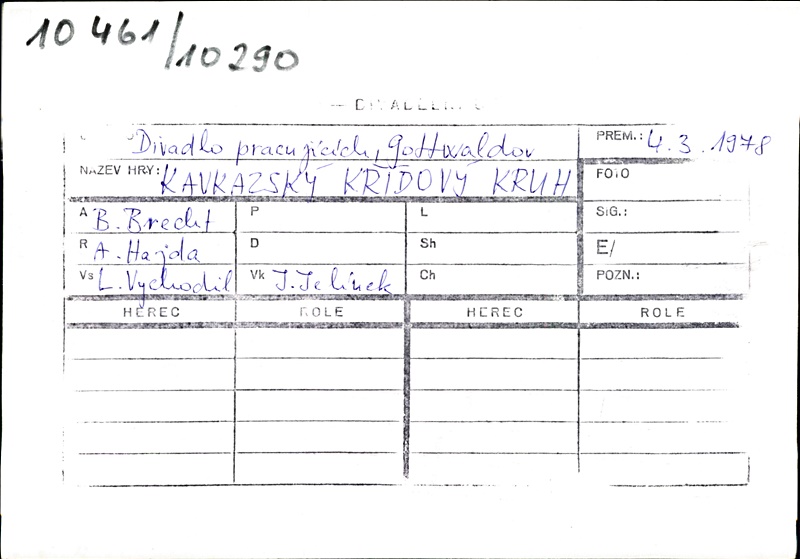 10 461/10 290
Divadlo pracujících, Gottwaldov
PREM.: 4.3.1978
NÁZEV HRY: KAVKAZSKÝ KŘÍDOVÝ KRUH
FOTO
A B. Brecht P L SIG.:
R A. Hajda D Sh E/
Vs L. Vychodil Vk J. Jelínek Ch POZN.:
HEREC ROLE HEREC ROLE